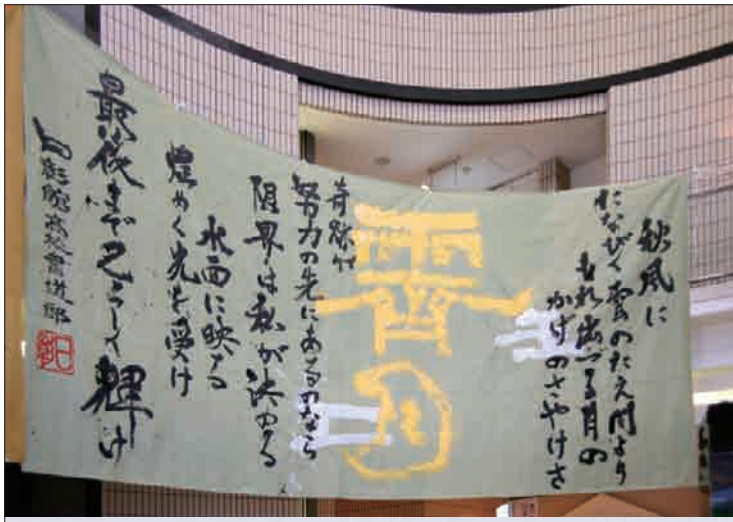 秋風に
たなびく雲のたえ間より
もれ出づる月の
かげのさやけさ
霽月
奇跡が
努力の先にあるのなら
限界は私が決める
水面に映る
煌めく光を受け
最後まで己らしく輝け
日彰館高校書道部